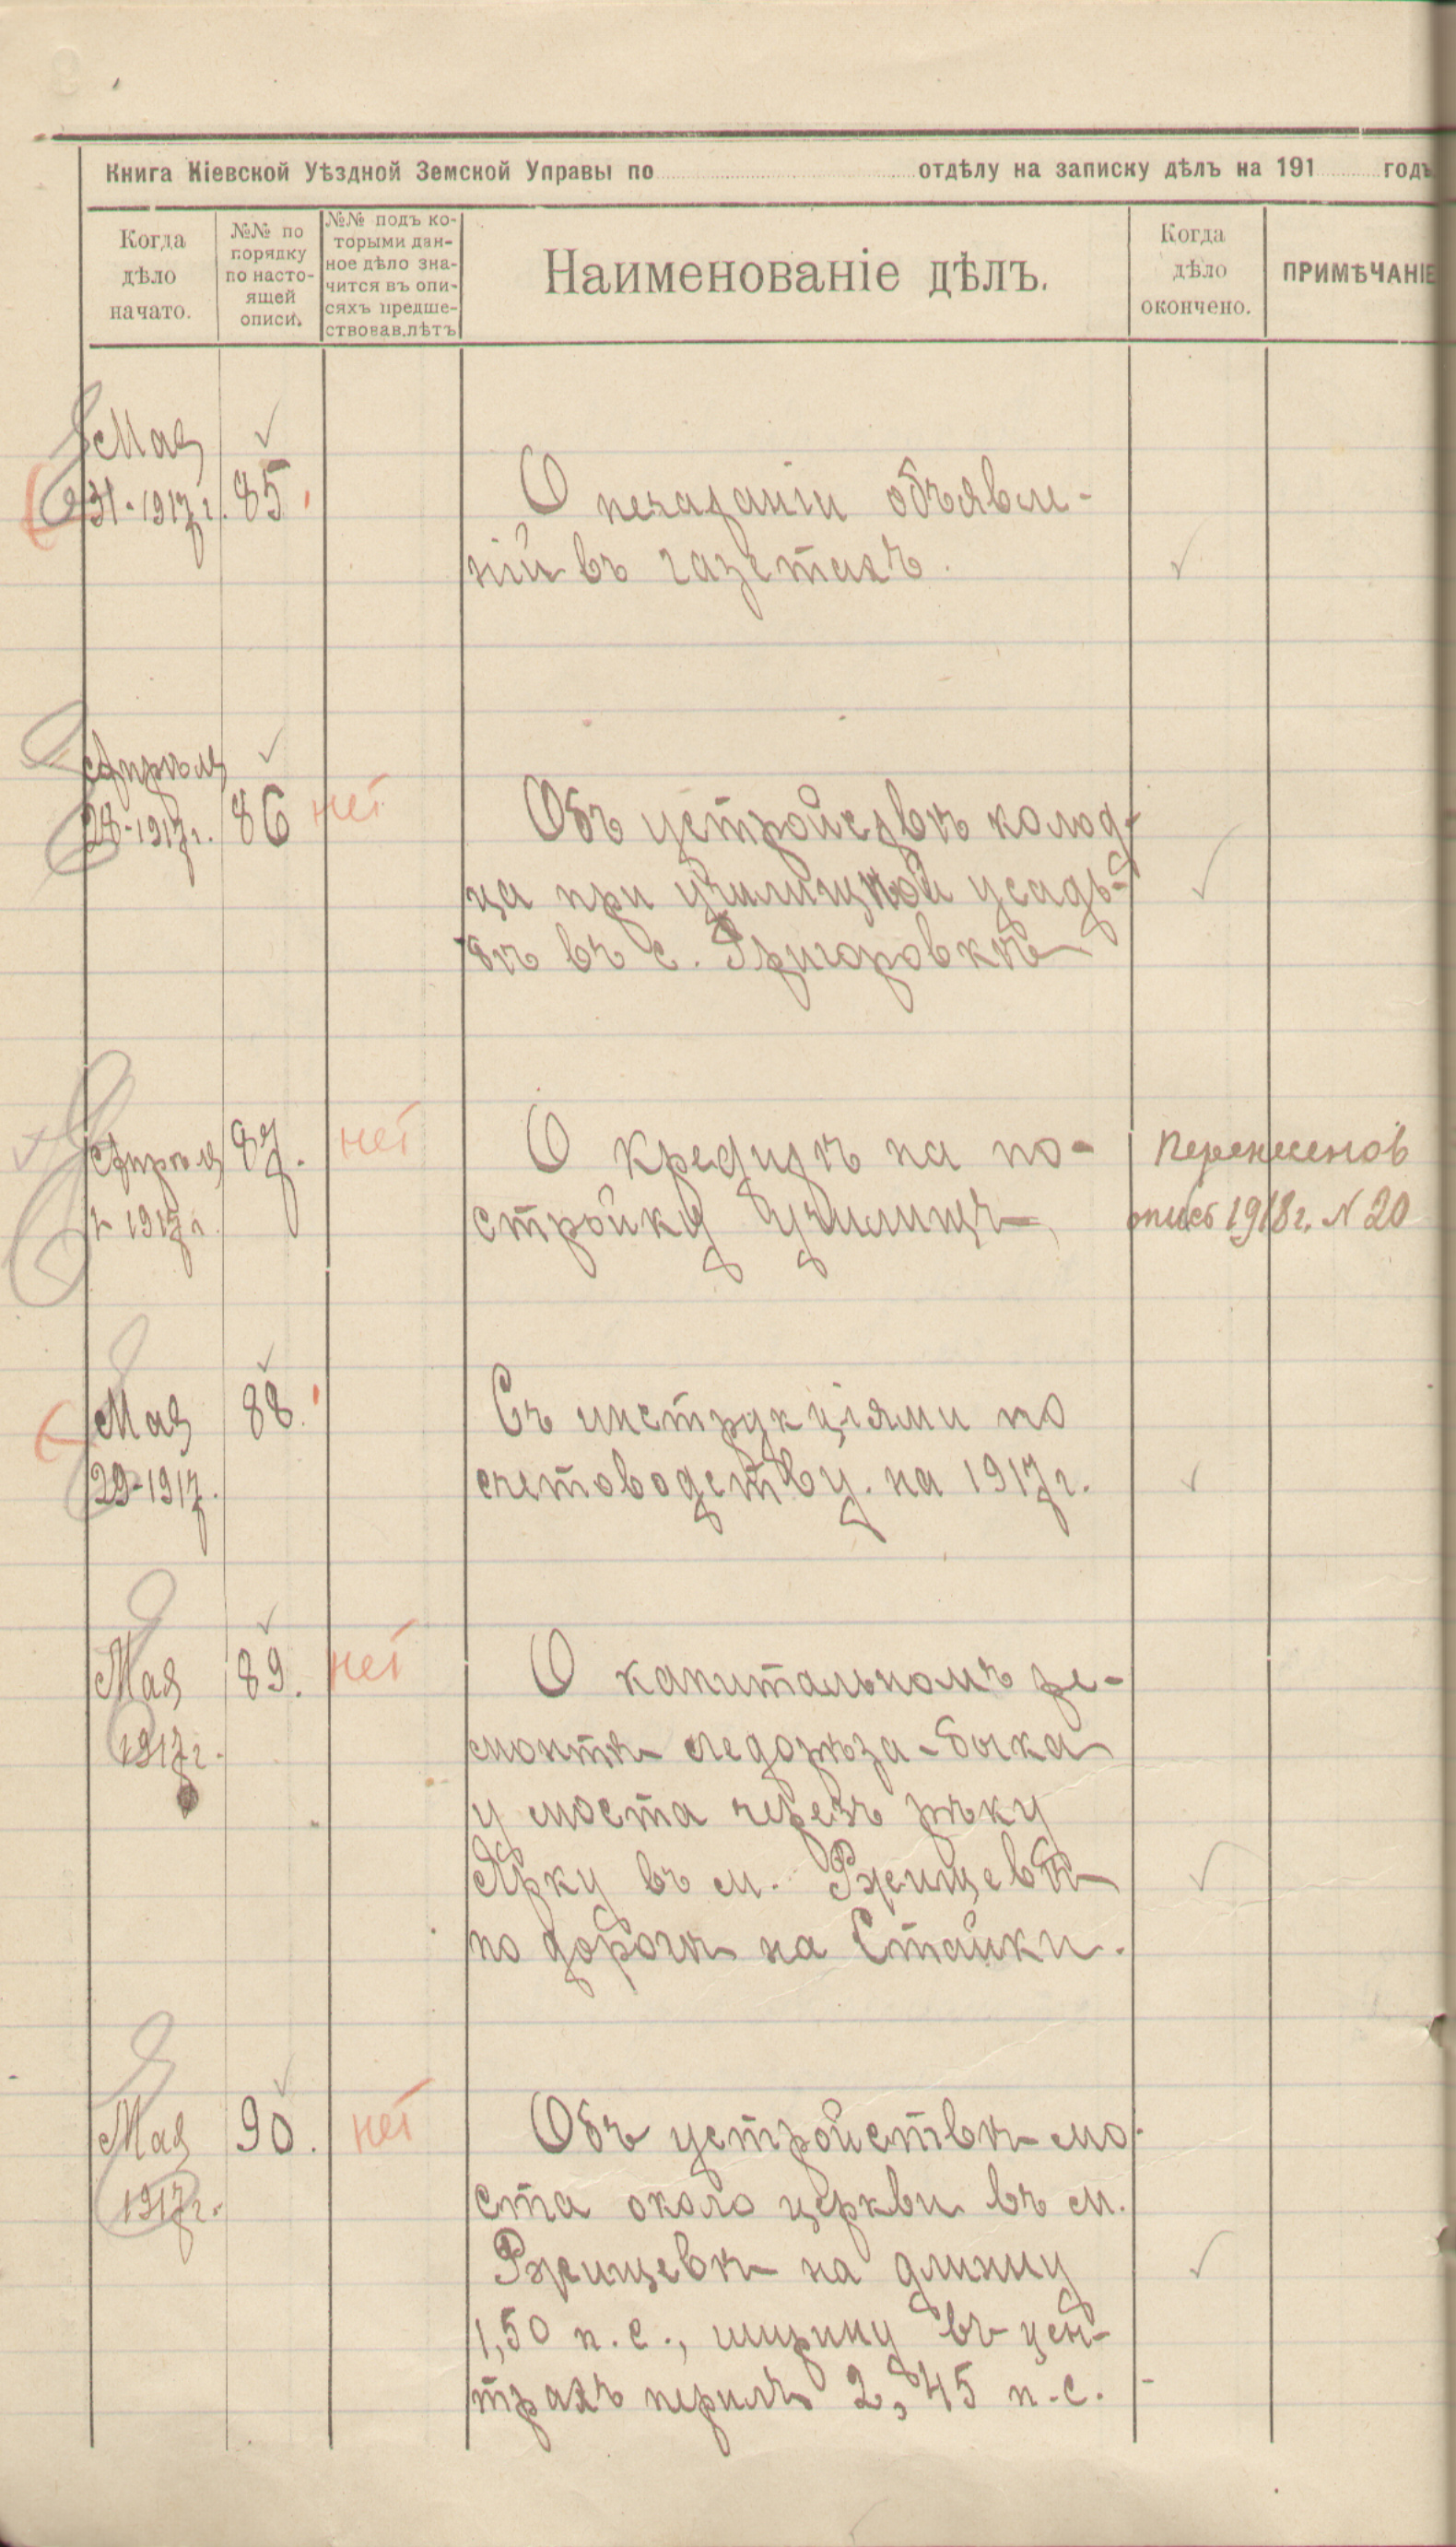 Книга Кіевской Уѣздной Земской Управы по отдѣлу на записку дѣлъ на 191 годъ
Когда
дѣло
начато.
№№ по
порядку
по насто-
ящей
описи.
№№ подъ ко-
торыми дан-
ное дѣло зна-
чится въ опи-
сяхъ предше-
ствовав.лѣтъ
Наименованіе дѣлъ.
Когда
дѣло
окончено.
ПРИМѢЧАНІЕ
Мая
31-1917г. 85
О печатаніи объявле-
ній въ газетахъ.
Апрѣля
28-1917г. 86 нет
Объ устройствѣ колод-
ца при училищной усадь-
бѣ въ с. Григоровкѣ
Апрѣля 87. нет
1917г.
О кредитѣ на по-
стройку училищъ
Перенесено в
опись 1918г. N 20
Мая 88.
29-1917.
Съ инструкціями по
счетоводству на 1917г.
Мая 89. нет
1917г.
О капитальномъ ре-
монтѣ ледорѣза-быка
у моста черезъ рѣку
Ярку въ м. Ржищевѣ
по дорогѣ на Стайки.
Мая 90. нет
1917г.
Объ устройствѣ мо-
ста около церкви въ м.
Ржищевѣ на длину
1,50 п.с., ширину въ цен-
трахъ перилъ 2,45 п.с.